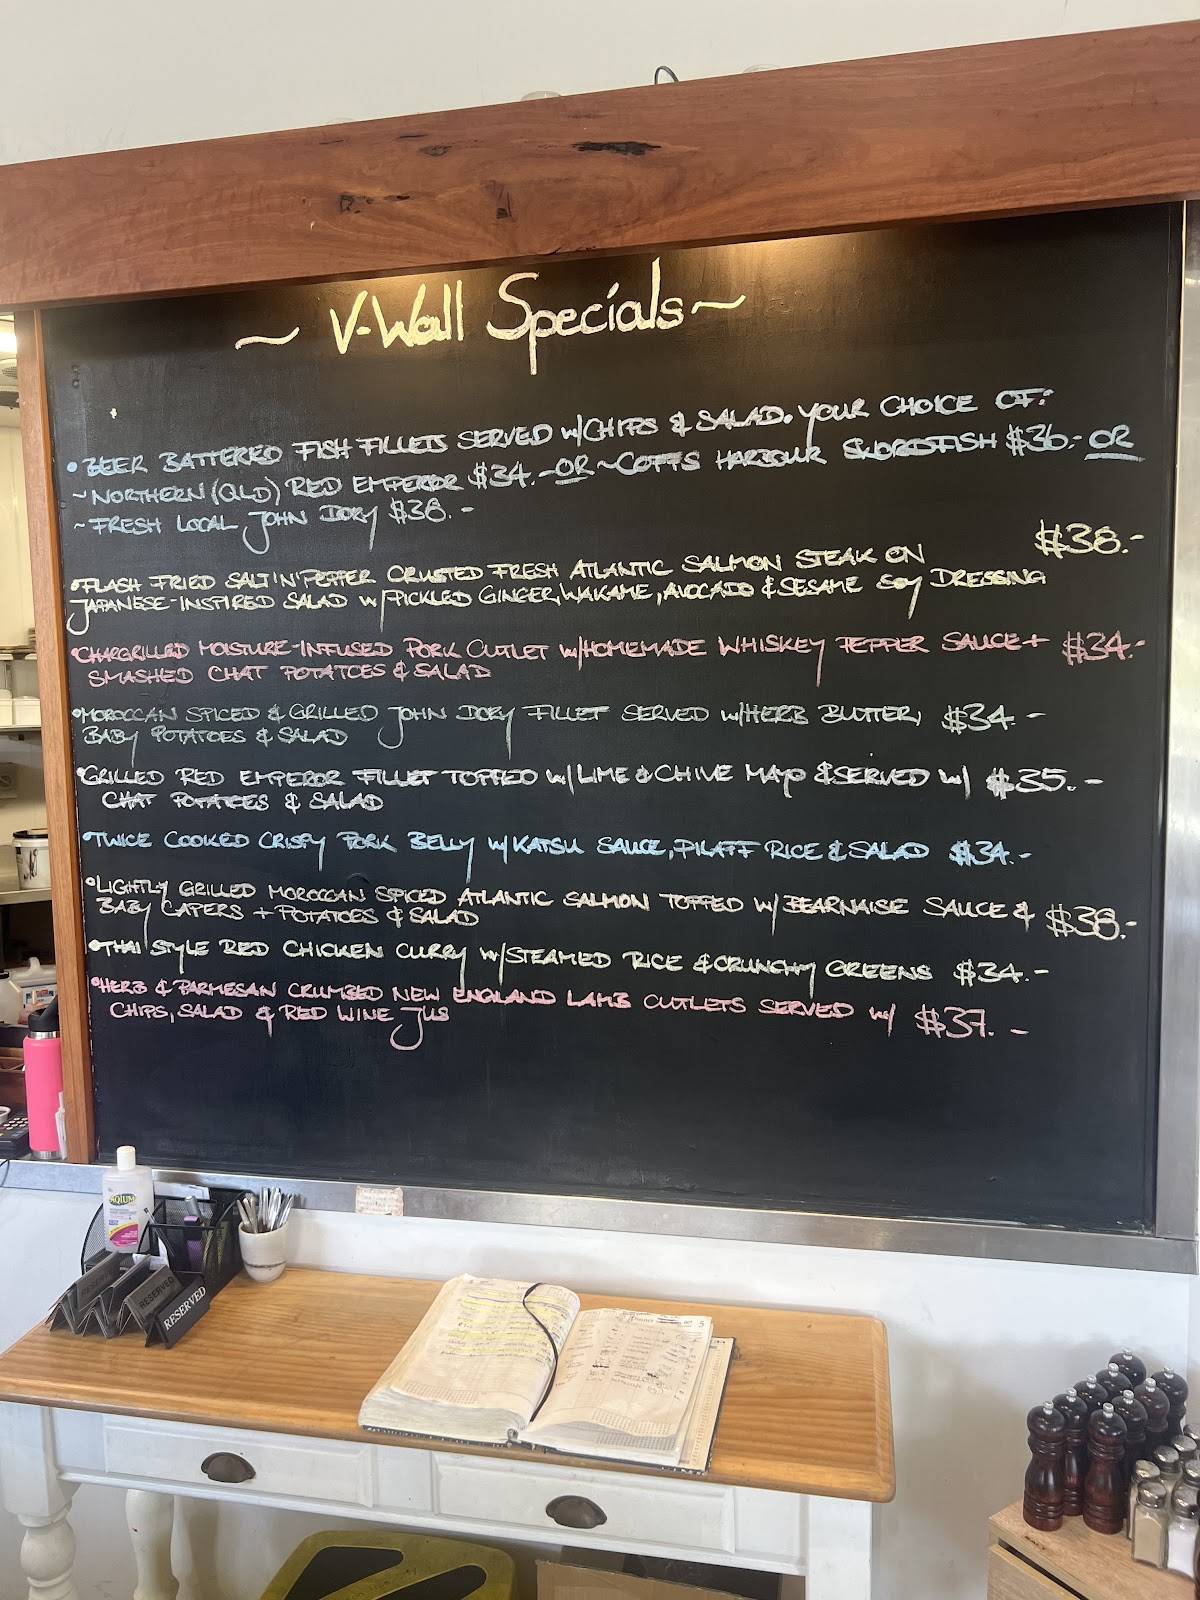 ~ V-Wall Specials ~
• BEER BATTERED FISH FILLETS SERVED w/CHIPS & SALAD. YOUR CHOICE OF:
~ NORTHERN (QLD) RED EMPEROR $34.- OR ~ COFFS HARBOUR SWORDFISH $36.- OR
~ FRESH LOCAL JOHN DORY $38.-
$38.-
• FLASH FRIED SALT'N'PEPPER CRUSTED FRESH ATLANTIC SALMON STEAK ON
JAPANESE-INSPIRED SALAD w/PICKLED GINGER, WAKAME, AVOCADO & SESAME SOY DRESSING
• CHARGRILLED MOISTURE-INFUSED PORK CUTLET w/HOMEMADE WHISKEY PEPPER SAUCE + $34.-
SMASHED CHAT POTATOES & SALAD
• MOROCCAN SPICED & GRILLED JOHN DORY FILLET SERVED w/HERB BUTTER, $34.-
BABY POTATOES & SALAD
• GRILLED RED EMPEROR FILLET TOPPED w/LIME & CHIVE MAYO & SERVED w/ $35.-
CHAT POTATOES & SALAD
• TWICE COOKED CRISPY PORK BELLY w/KATSU SAUCE, PILAFF RICE & SALAD $34.-
• LIGHTLY GRILLED MOROCCAN SPICED ATLANTIC SALMON TOPPED w/BEARNAISE SAUCE & $38.-
BABY CAPERS + POTATOES & SALAD
• THAI STYLE RED CHICKEN CURRY w/STEAMED RICE & CRUNCHY GREENS $34.-
• HERB & PARMESAN CRUMBED NEW ENGLAND LAMB CUTLETS SERVED w/ $37.-
CHIPS, SALAD & RED WINE JUS
AQIUM
RESERVED
RESERVED
RESERVED